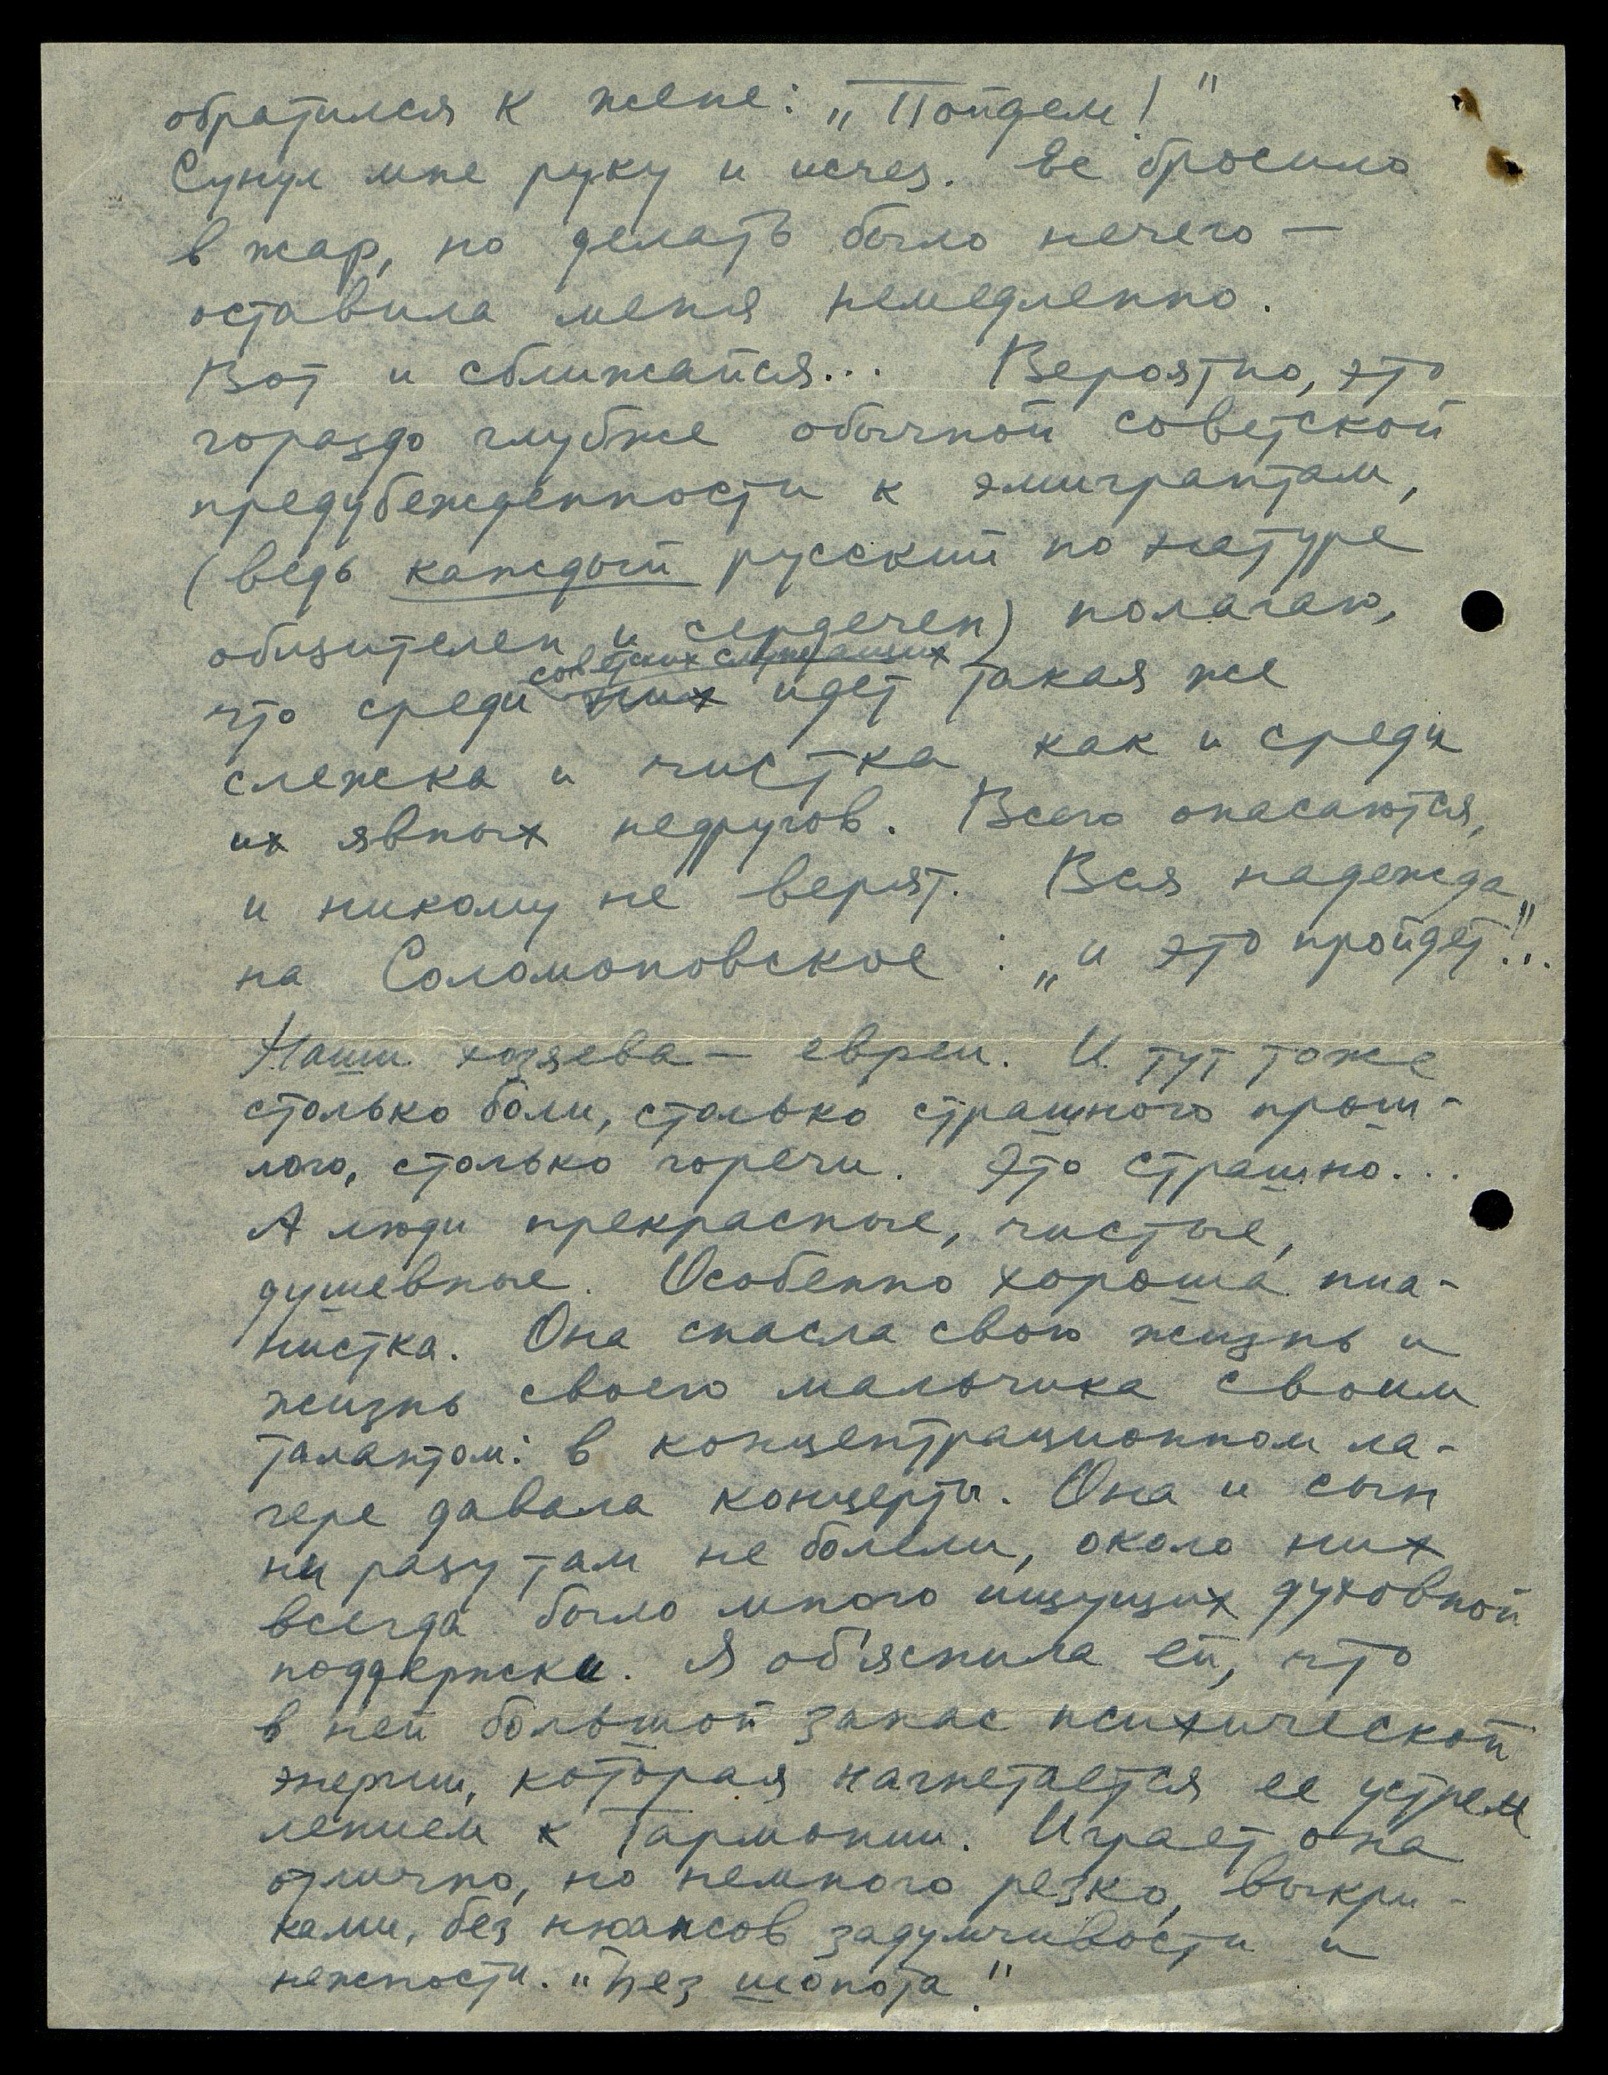 обратился к жене: „Пойдем!"
Сунул мне руку и исчез. Ее бросило
в жар, но делать было нечего —
оставила меня немедленно.
Вот и сближайся... Вероятно, это
гораздо глубже обычной советской
предубежденности к эмигрантам,
(ведь каждый русский по натуре
общителен и сердечен) полагаю,
советских служащих
что среди них идет такая же
слежка и чистка, как и среди
их явных недругов. Всего опасаются,
и никому не верят. Вся надежда
на Соломоновское: „и это пройдет!"...
Наши хозяева — евреи. И тут тоже
столько боли, столько страшного прош-
лого, столько горечи. Это страшно...
А люди прекрасные, чистые,
душевные. Особенно хороша пиа-
нистка. Она спасла свою жизнь и
жизнь своего мальчика своим
талантом: в концентрационном ла-
гере давала концерты. Она и сын
ни разу там не болели, около них
всегда было много ищущих духовной
поддержки. Я об'яснила ей, что
в ней большой запас психической
энергии, которая нагнетается ее устрем
лением к Гармонии. Играет она
отлично, но немного резко, выкри-
ками, без нюансов задумчивости и
нежности. „Без шопота!"